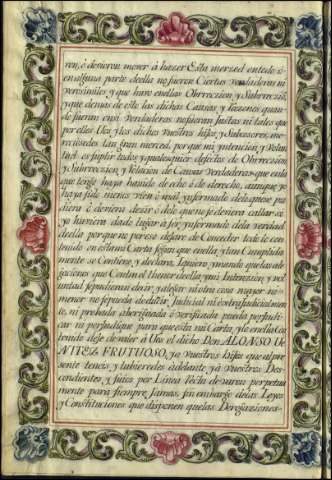 ren, ò devieron mover à hazer Esta merzed entodo ò
en alguna parte deella no fueren Ciertas verdaderas ni
verosimiles y que havo enellas Obrreczion, y Subrreczió,
y que demas de esto las dichas Causas, y razones quan-
do fueran ensi Verdaderas no fueran Justas ni tales que
por ellas Vos y los dichos Vuestros hijos, y Subzesores, me-
reciesedes tan gran merced, por que mi yntencion, y Volun
tad es suplir todos y qualesquier defectos de Obrreczion
y Subrreczion, y Relacion de Causas Verdaderas que en lo
que tengo haya havido de echo ò de derecho, aunque yo
haya sido menos vien ò mal ynformado de lo que se pu-
diera ò deviera dezir ò delo que no se deviera callar se
yo huviera dado lugar à ser ynformado dela verdad
deella porque no por eso dejare de Conceder todo lo con-
tenido en esta mi Carta segun que enella, y tan Cumplida
mente se Contiene, y declara, I quiero, y mando que las ale-
gaciones que Contra el thenor deella, y mi Intencion, y vol
untad se pudieran dezir, y alegar ni otra cosa mayor ni
menor no se pueda deduzir, Judicial ni extraJudicialmen
te, ni probada aberiguada ò verificada pueda perJudi-
car ni perjudique para que esta mi Carta, y lo enella Con
tenido deje de valer à Vos el dicho Don ALONSO VE
NITEZ FRUTUOSO, y à Vuestros Hijos que al pre
sente teneis, y tubieredes adelante, y à Vuestros Des-
cendientes, y suios por Linea recta de varon perpetua
mente para siempre Jamas, sin embargo delas Leyes
y Constituciones que disponen que las Derogaziones-